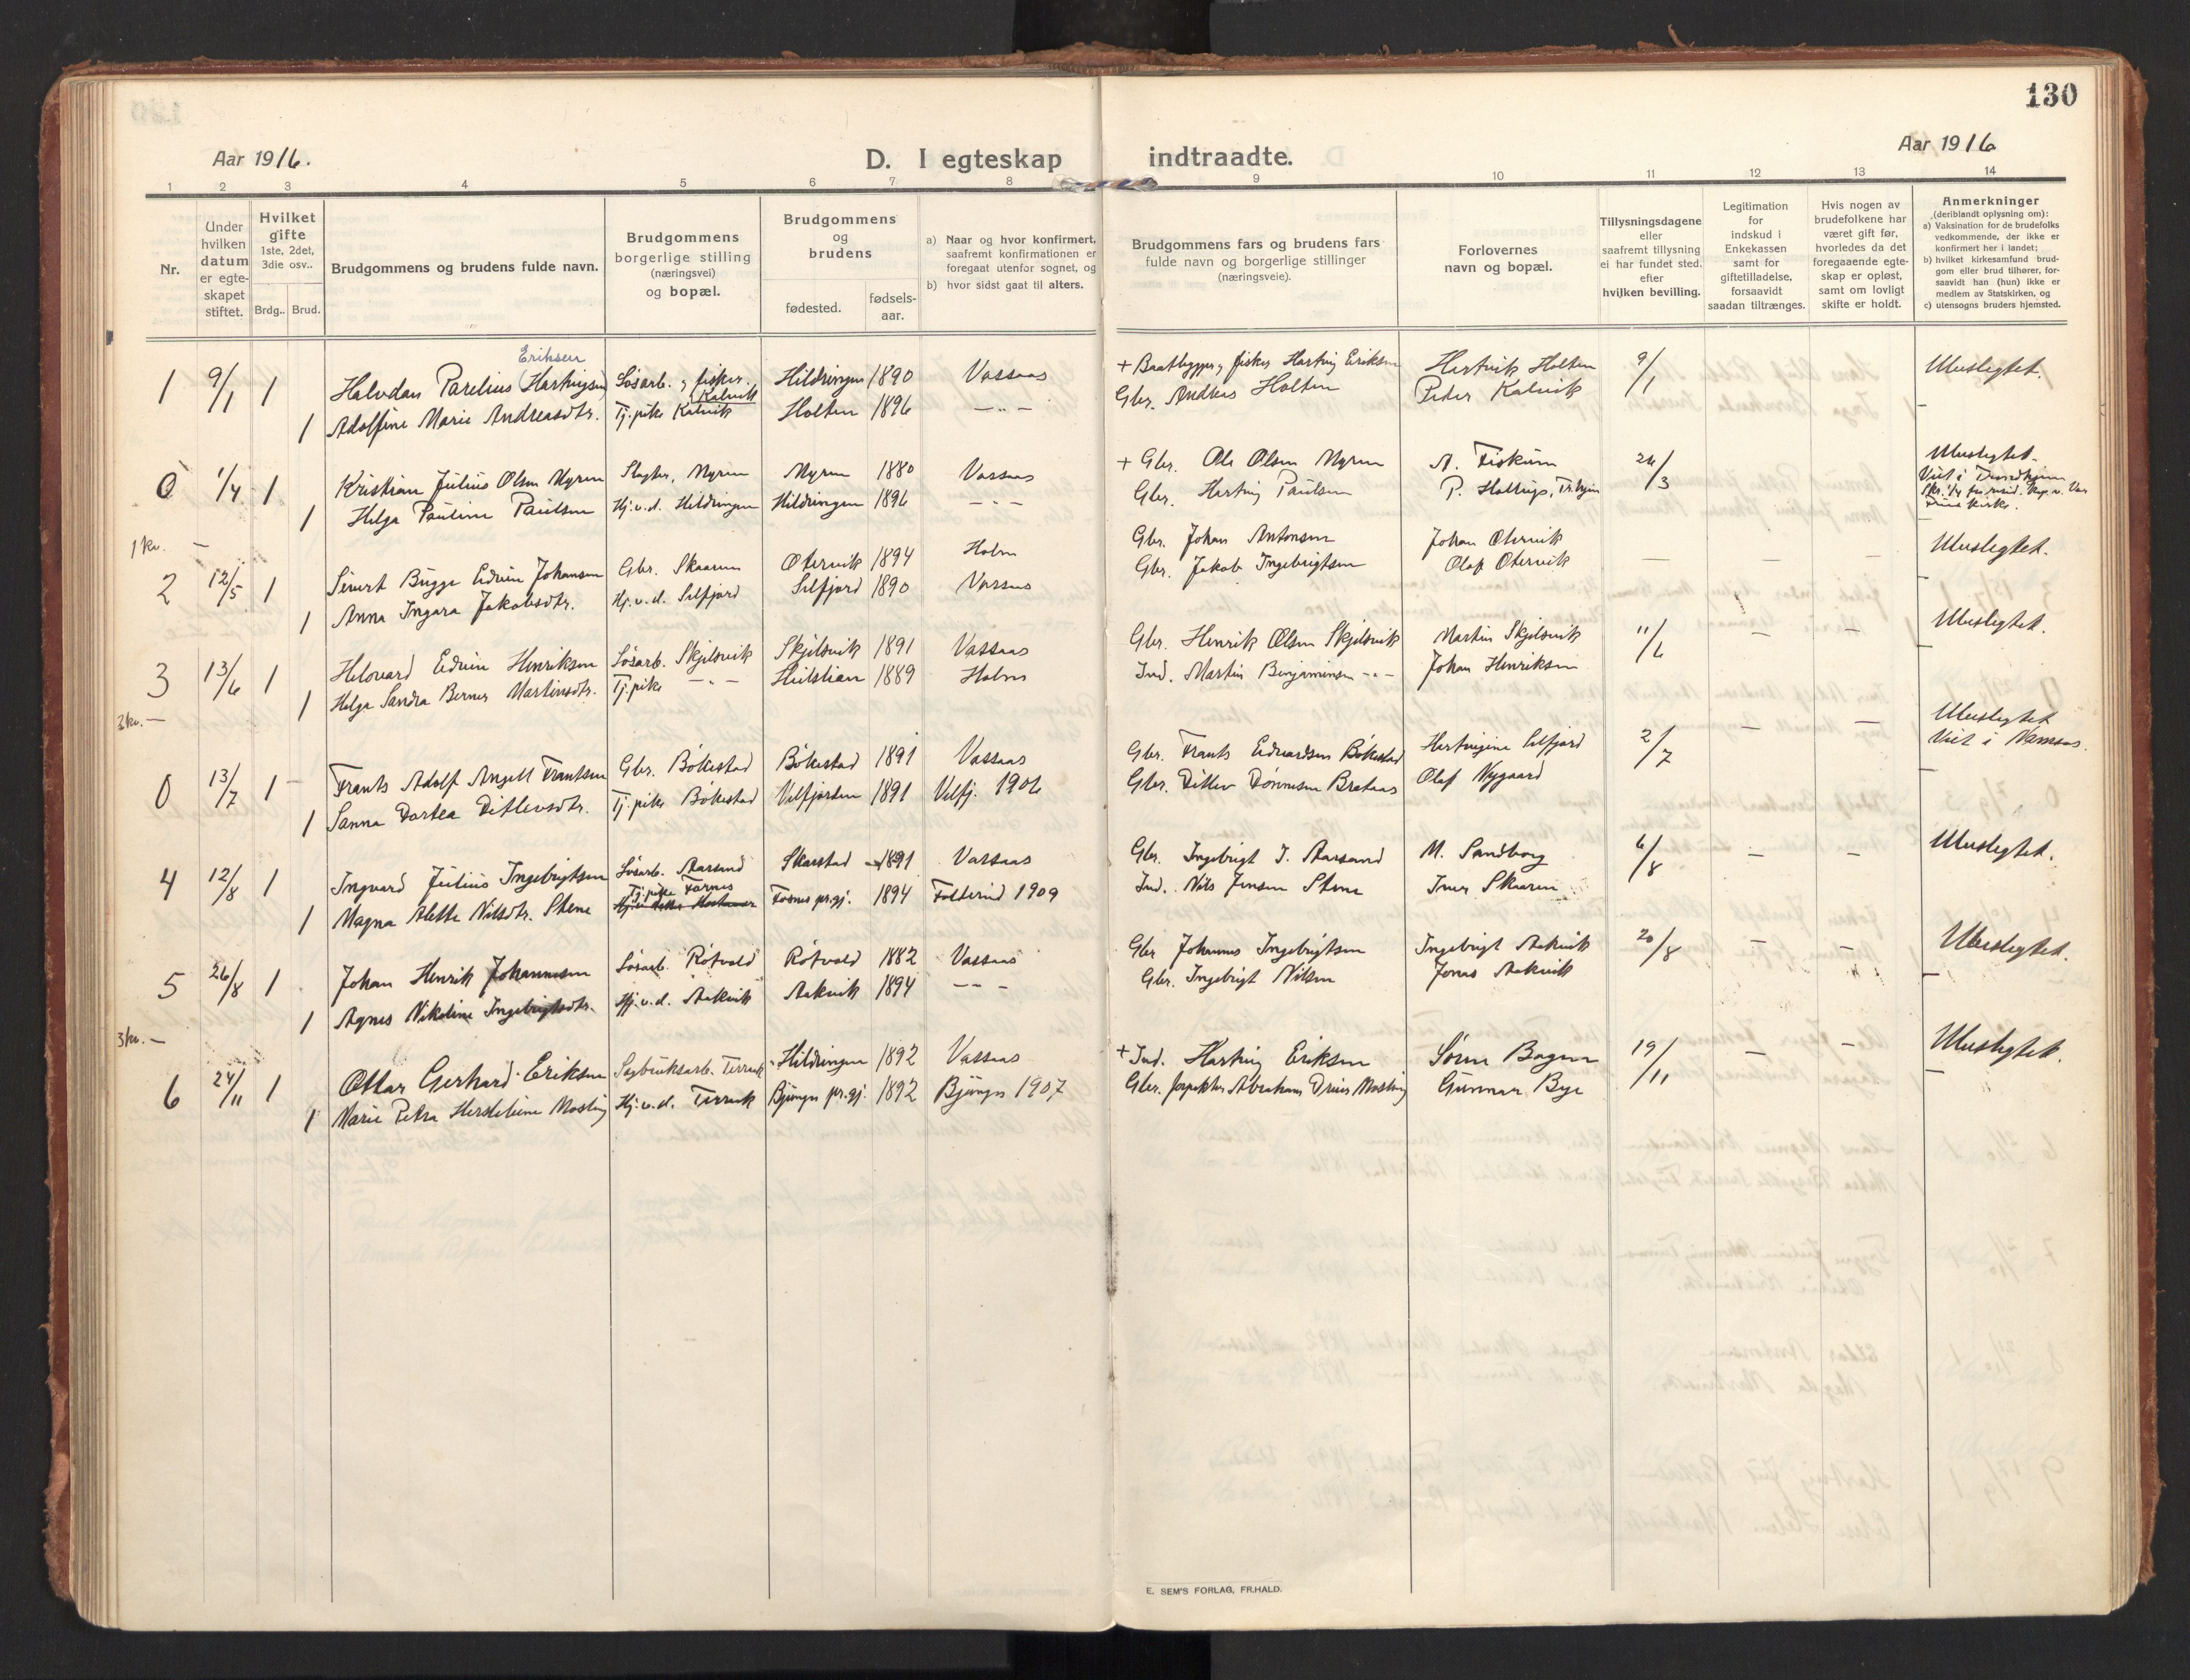 130
Aar 1916.
D. I egteskap indtraadte.
Aar 1916
1 2 3 4 5 6 7 8 9 10 11 12 13 14
Nr.
Under hvilken datum er egteskapet stiftet.
Hvilket gifte 1ste, 2det, 3die osv..
Brdg.. Brud.
Brudgommens og brudens fulde navn.
Brudgommens borgerlige stilling (næringsvei) og bopæl.
Brudgommens og brudens
fødested.
fødsels-aar.
a) Naar og hvor konfirmert, saafremt konfirmationen er foregaat utenfor sognet, og
b) hvor sidst gaat til alters.
Brudgommens fars og brudens fars fulde navn og borgerlige stillinger (næringsveie).
Forlovernes navn og bopæl.
Tillysningsdagene eller saafremt tillysning ei har fundet sted, efter hvilken bevilling.
Legitimation for indskud i Enkekassen samt for giftetilladelse, forsaavidt saadan tiltrænges.
Hvis nogen av brudefolkene har været gift før, hvorledes da det foregaaende egteskap er opløst, samt om lovligt skifte er holdt.
Anmerkninger (deriblandt oplysning om):
a) Vaksination for de brudefolks vedkommende, der ikke er konfirmert her i landet;
b) hvilket kirkesamfund brudgom eller brud tilhører, forsaavidt han (hun) ikke er medlem av Statskirken, og
c) utensogns bruders hjemsted.
Eriksen
1 9/1 1 Halvdan Parelius (Hartvigsen) Løsarb. og fisker. Kalvik Hildringen 1890 Vassaas + Baatbygger, fisker Hartvig Eriksen Hartvik Holten 9/1 Ubeslegtet.
1 Adolfine Marie Andreasdtr. Tj.pike Kalvik Holten 1896 — " — Gbr. Andreas Holten Peder Kalvik —
0 1/4 1 Kristian Julius Olsen Myren Slagter, Myren Myren 1880 Vassaas + Gbr. Ole Olsen Myren A. Fiskum 26/3 Ubeslegtet.
1 Helga Pauline Paulsen Hj.v.d. Hildringen Hildringen 1896 — " — Gbr. Hartvig Paulsen P. Hallup, Tr.hjem Viet i Trondhjem
1 kv. —
2 12/5 1 Sivert Bugge Edvin Johansen Gbr. Skaaren Otervik 1894 Holm Gbr. Johan Antonsen Johan Otervik — — — Ubeslegtet.
1 Anna Ingara Jakobsdtr. Hj.v.d. Silfjord Silfjord 1890 Vassaas Gbr. Jakob Ingebrigtsen Olaf Otervik —
3 13/6 1 Helovard Edvin Henriksen Løsarb. Skjelsvik Skjelsvik 1891 Vassaas Gbr. Henrik Olsen Skjelsvik Martin Skjelsvik 11/6 — — Ubeslegtet.
1 Helga Sandra Bernes Martinsdtr. Tj.pike — " — 1889 Holm Ind. Martin Benjaminsen — " — Johan Henriksen —
3 kv. —
0 13/7 1 Frants Adolf Angell Frantsen Gbr. Bökestad Bökestad 1891 Vassaas Gbr. Frants Edvardsen Bökestad Hartvigine Silfjord 2/7 — — Ubeslegtet
1 Sanna Dortea Ditlevsdtr. Tj.pike Bökestad Velfjorden 1891 Velfj. 1906 Gbr. Ditlev Tönnesen Brataas Olaf Nygaard Viet i Namsos. —
4 12/8 1 Ingvard Julius Ingebrigtsen Løsarb. Aarsand Skarstad 1891 Vassaas Gbr. Ingebrigt J. Aarsand M. Sandborg 6/8 — — Ubeslegtet.
1 Magna Alette Nilsdtr. Stene Tj.pike Farnes Fosnes pr.gj. 1894 Folderud 1909 Ind. Nils Jensen Stene Iver Skaaren —
5 26/8 1 Johan Henrik Johannesen Løsarb. Röfvold Röfvold 1882 Vassaas Gbr Johannes Ingebrigtsen Ingebrigt Aakvik 20/8 — — Ubeslegtet.
1 Agnes Nikoline Ingebrigtsdtr. Hj.v.d. Aakvik Aakvik 1894 — " — Gbr. Ingebrigt Nilsen Jonas Aakvik —
3 kv. —
6 24/11 1 Ottar Gerhard Eriksen Sagbruksarb. Terraak Hildringen 1892 Vassaas + Ind. Hartvig Eriksen Sören Bogen 19/11 — — Ubeslegtet.
1 Marie Petra Hersleline Mosling Hj.v.d. Terraak Bjugn pr.gj. 1892 Bjugn 1907 Gbr. Abraham Mosling Gunnar Bye —
E. SEM'S FORLAG, FR.HALD.